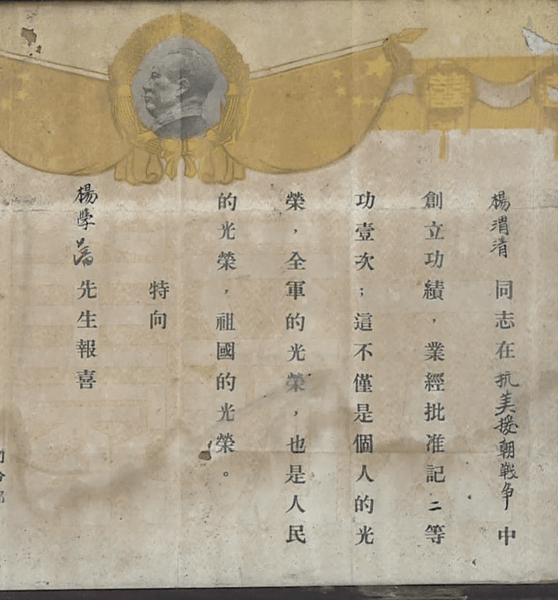 楊渭清同志在抗美援朝戰争中
創立功績，業經批准記二等
功壹次；這不僅是個人的光
榮，全軍的光榮，也是人民
的光榮，祖國的光榮。
特向
楊學蕃先生報喜
囍